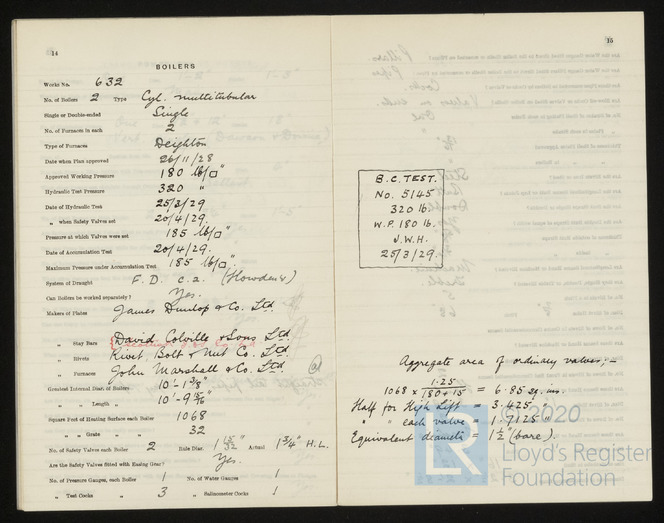 14
BOILERS
Works No. 632
No. of Boilers 2 Type Cyl. multitubular
Single or Double-ended Single
No. of Furnaces in each 2
Type of Furnaces Deighton
Date when Plan approved 26/11/28
Approved Working Pressure 180 lb/□"
Hydraulic Test Pressure 320 "
Date of Hydraulic Test 25/3/29
„ when Safety Valves set 20/4/29.
Pressure at which Valves were set 185 lb/□"
Date of Accumulation Test 20/4/29.
Maximum Pressure under Accumulation Test 185 lb/□".
System of Draught F.D. C.2. (Howden's)
Can Boilers be worked separately? Yes.
Makers of Plates James Dunlop & Co. Ltd.
„ Stay Bars David Colville & Sons Ltd.
„ Rivets Rivet, Bolt & Nut Co. Ltd.
„ Furnaces John Marshall & Co. Ltd.
Greatest Internal Diam. of Boilers 10'-1 3/8"
„ „ Length „ 10'-9 5/16"
Square Feet of Heating Surface each Boiler 1068
„ „ Grate „ „ 32
No. of Safety Valves each Boiler 2 Rule Diam. 1 15/32" Actual 1 3/4" H.L.
Are the Safety Valves fitted with Easing Gear? Yes.
No. of Pressure Gauges, each Boiler 1 No. of Water Gauges 1
„ Test Cocks „ 3 „ Salinometer Cocks 1
15
B.C. TEST.
No. 5145
320 lb.
W.P. 180 lb.
J.W.H.
25/3/29.
Aggregate area of ordinary valves:-
1068 × 1.25/180+15 = 6.85 sq. ins.
Half for High Lift = 3.425 "
" " each valve = 1.7125 "
Equivalent diamete = 1½ (bare).
© 2020
LR
Lloyd's Register
Foundation